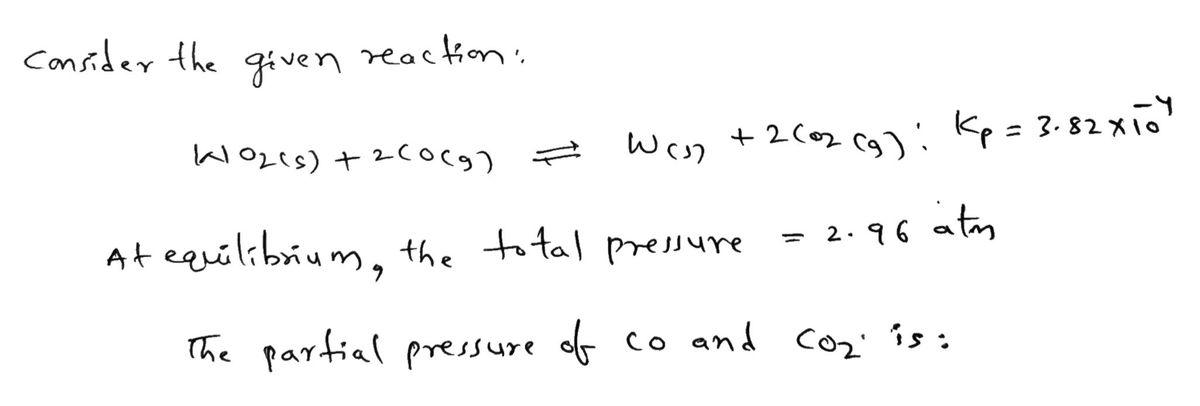 Consider the given reaction:
WO2(s) + 2CO(g) ⇌ W(s) + 2CO2(g); Kp = 3.82×10⁻⁴
At equilibrium, the total pressure = 2.96 atm
The partial pressure of CO and CO2 is: